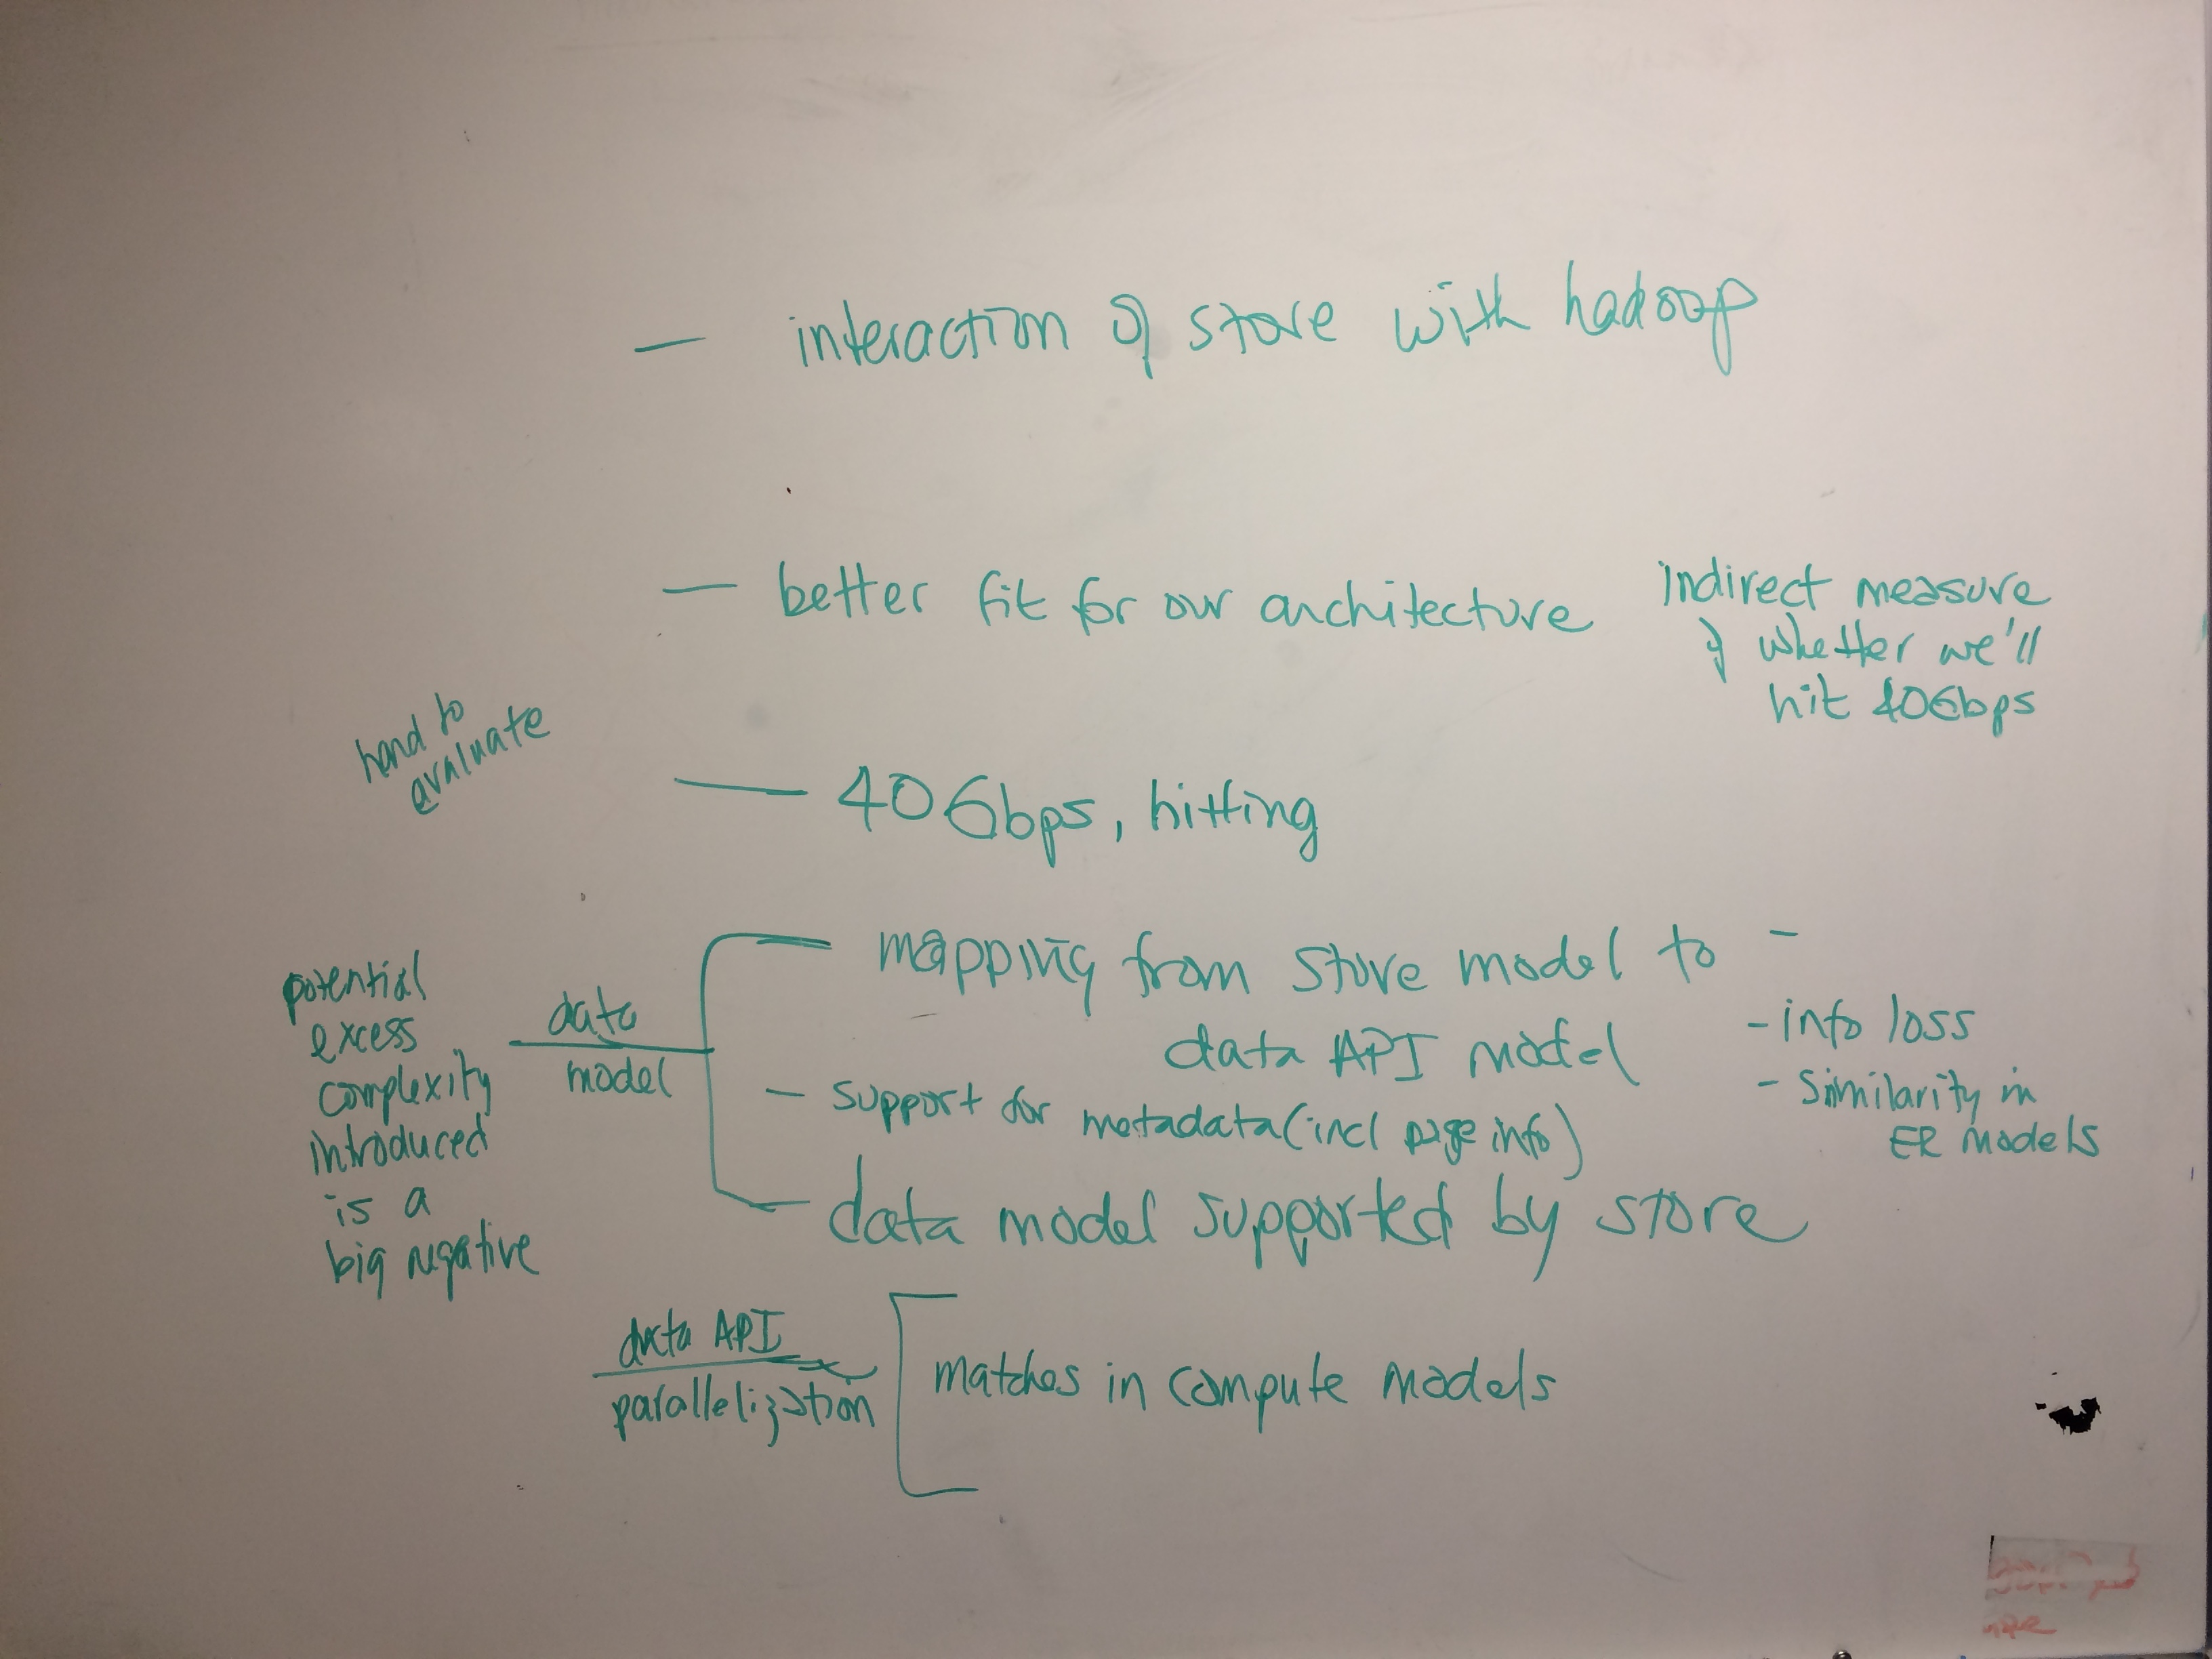 — interaction of store with hadoop
— better fit for our architecture
indirect measure
of whether we'll
hit 40Gbps
hard to
evaluate
— 40Gbps, hitting
potential
excess
complexity
introduced
is a
big negative
data
model
mapping from store model to
data API model
-
- info loss
- similarity in
ER models
- support for metadata (incl page info)
data model supported by store
data API
parallelization
matches in compute models